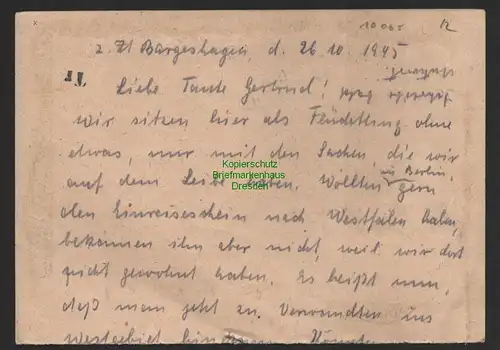 10 065 12
z. Zt Bargeshagen, d. 26 10. 1945
Liebe Tante Gertrud!
wir sitzen hier als Flüchtling ohne
etwas, nur mit den Sachen, die wir
auf dem Leibe haben. Wollten in Berlin, gern
den Einreiseschein nach Westfalen haben,
bekommen ihn aber nicht, weil wir dort
nicht gewohnt haben. Es heißt nun,
daß man jetzt zu Verwandten ins
Westgebiet
Kopierschutz
Briefmarkenhaus
Dresden